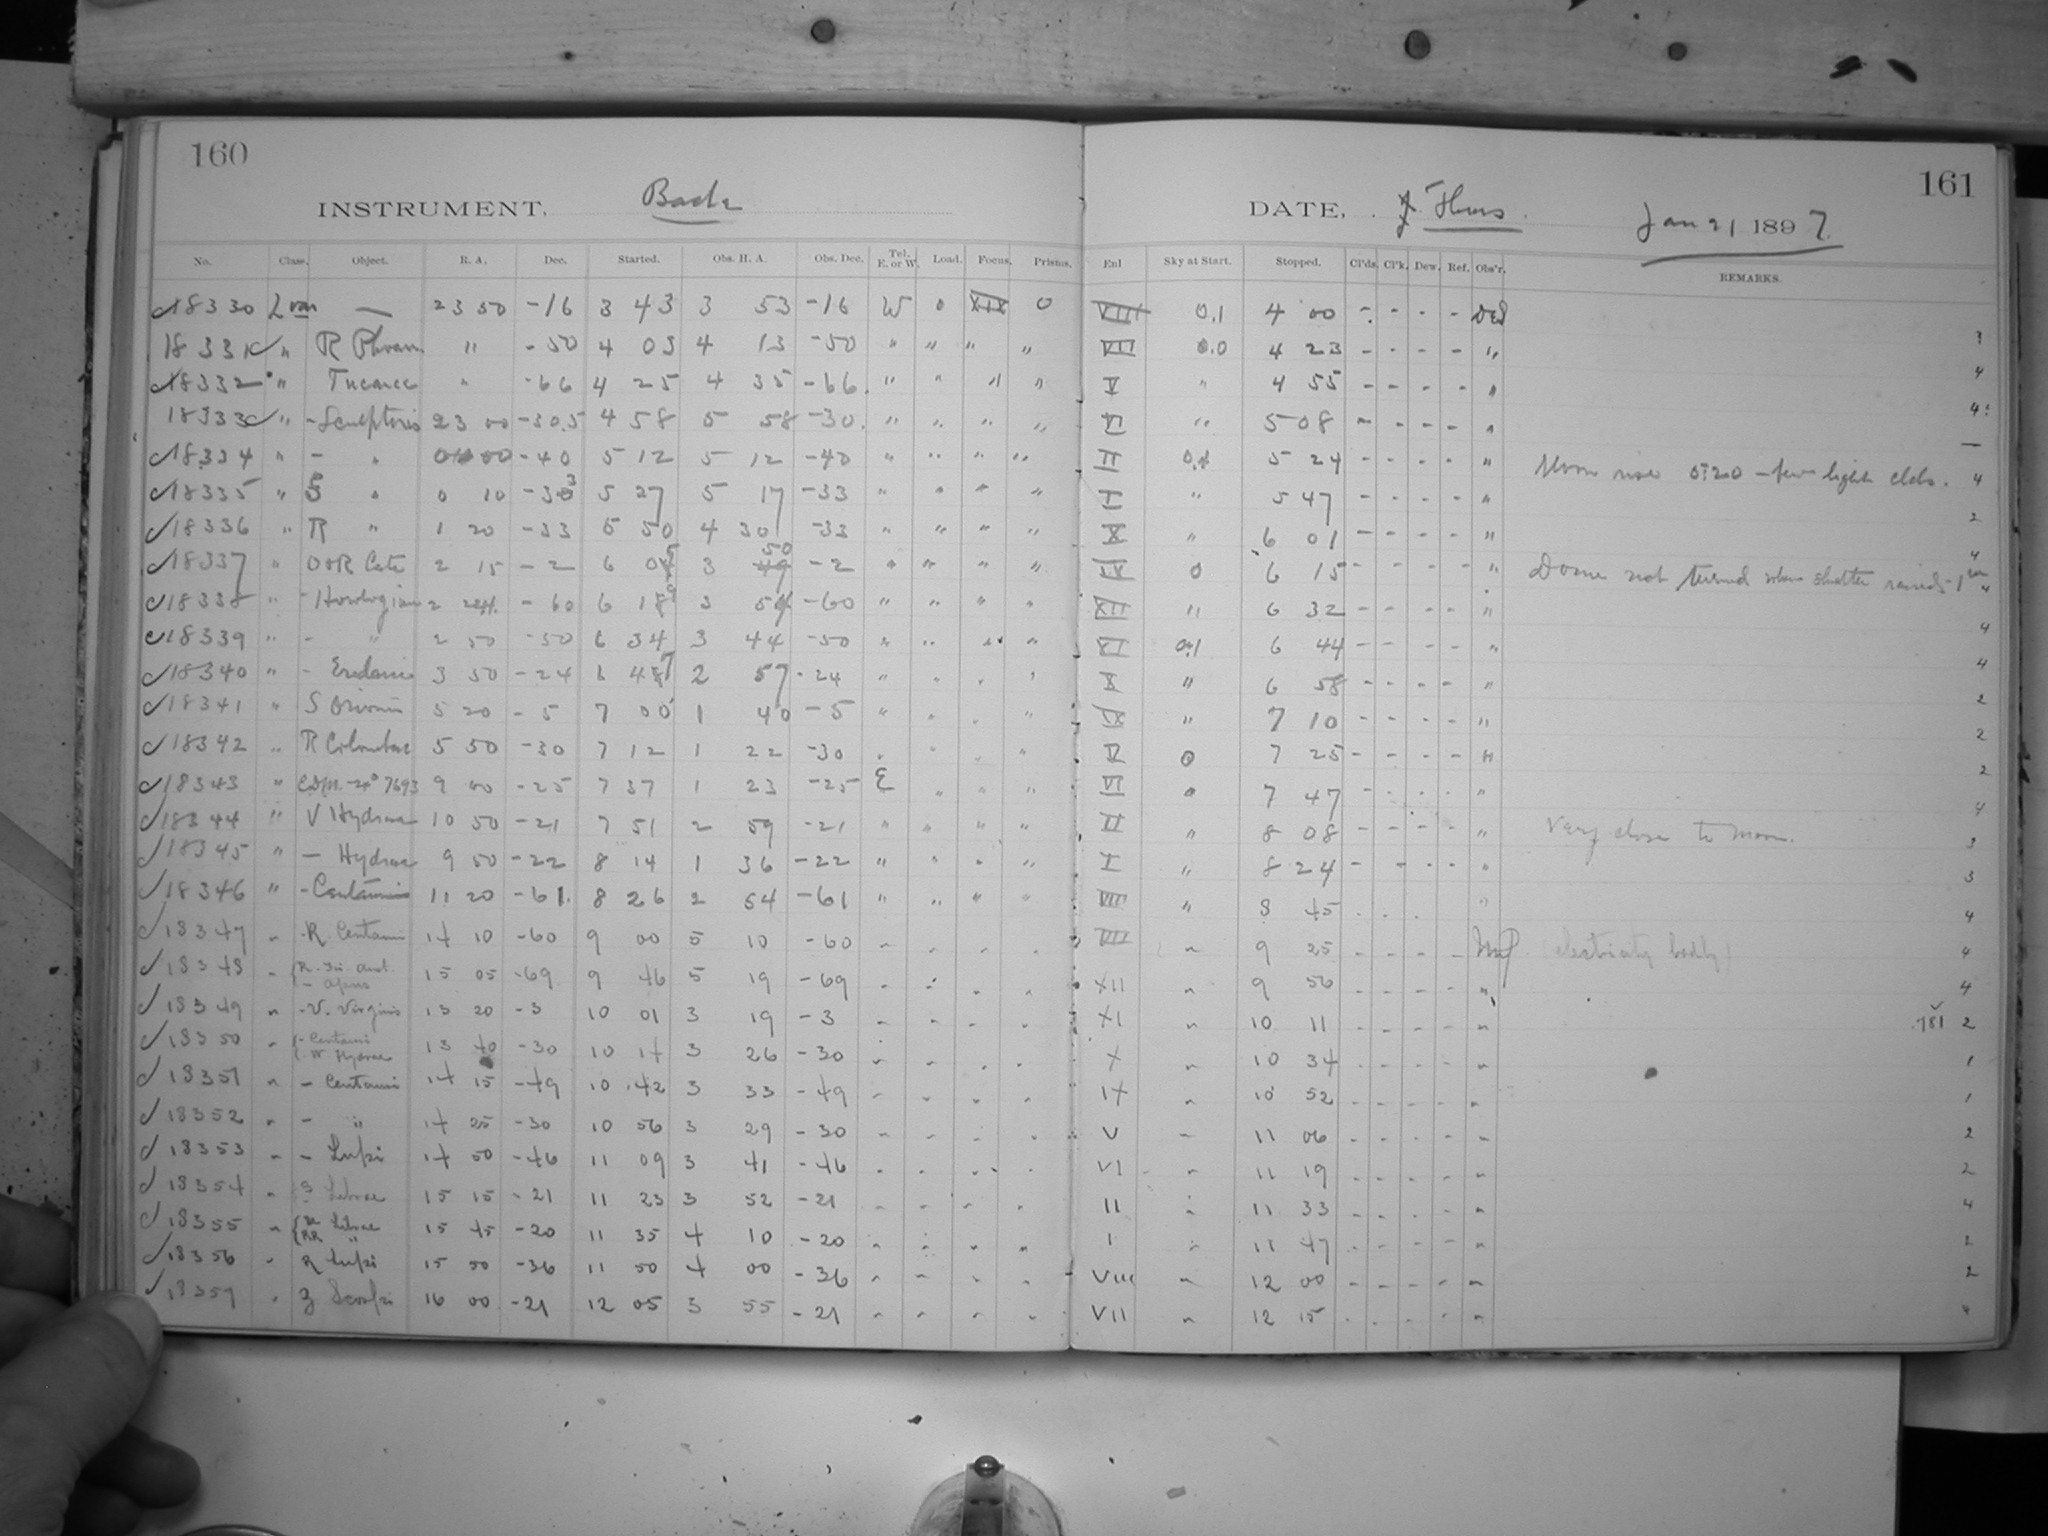 160
INSTRUMENT. Bache
No. Class. Object. R. A. Dec. Started. Obs. H. A. Obs. Dec. Tel. E. or W. Load. Focus. Prisms.
18330 L — 23 50 -16 3 43 3 53 -16 W 0 XIX 0
18331 " R Phoen. " -50 4 03 4 13 -50 " " " "
18332 " Tucanae " -66 4 25 4 35 -66. " " " "
18333 " - Sculptoris 23 00 -30.5 4 58 5 58 -30. " " " "
18334 " - " 00 -40 5 12 5 12 -40 " " " "
18335 " S " 0 10 -33 5 27 5 17 -33 " " " "
18336 " R " 1 20 -33 5 50 4 30 -33 " " " "
18337 " o & R Ceti 2 15 -2 6 05 3 50 -2 " " " "
18338 " - Horologium 2 24 -60 6 19 3 54 -60 " " " "
18339 " - " 2 50 -50 6 34 3 44 -50 " " " "
18340 " - Eridani 3 50 -24 6 47 2 57 -24 " " " "
18341 " S Orionis 5 20 -5 7 00 1 40 -5 " " " "
18342 " R Columbae 5 50 -30 7 12 1 22 -30 " " " "
18343 " C.D.M. -24° 7693 9 00 -25 7 37 1 23 -25 E " " "
18344 " V Hydrae 10 50 -21 7 51 2 59 -21 " " " "
18345 " - Hydrae 9 50 -22 8 14 1 36 -22 " " " "
18346 " - Centauris 11 20 -61. 8 26 2 54 -61 " " " "
18347 " -R. Centauri 14 10 -60 9 00 5 10 -60 " " " "
18348 " { R. Tri. Aust. - Apus 15 05 -69 9 46 5 19 -69 " " " "
18349 " -V. Virginis 13 20 -3 10 01 3 19 -3 " " " "
18350 " { - Centauri W Hydrae 13 40 -30 10 14 3 26 -30 " " " "
18351 " - Centauri 14 15 -49 10 42 3 33 -49 " " " "
18352 " - " 14 25 -30 10 56 3 29 -30 " " " "
18353 " - Lupi 14 50 -46 11 09 3 41 -46 " " " "
18354 " S Librae 15 15 -21 11 23 3 52 -21 " " " "
18355 " { RR Librae " 15 45 -20 11 35 4 10 -20 " " " "
18356 " R Lupi 15 50 -36 11 50 4 00 -36 " " " "
18357 " Z Scorpi 16 00 -21 12 05 3 55 -21 " " " "
161
DATE, Thurs. Jan 21 1897
Enl Sky at Start. Stopped. Cl'ds. Cl'k. Dew. Ref. Obs'r. REMARKS.
VIII 0.1 4 00 - - - -
VII 0.0 4 23 - - - - " 3
V " 4 55 - - - - " 4
VI " 5 08 - - - - " 4
II 0.1 5 24 - - - - " Moon rise - few light clds. 4
I " 5 47 - - - - "
X " 6 01 - - - - " 2
IX 0 6 15 - - - - " Dome not turned when shutter raised
XII " 6 32 - - - - "
XI 0.1 6 44 - - - - " 4
X " 6 58 - - - - " 4
IX " 7 10 - - - - " 2
V 0 7 25 - - - - " 2
VI " 7 47 - - - - " 2
II " 8 08 - - - - " Very close to Moon. 4
I " 8 24 - - - - " 3
VIII " 8 45 - - - " 3
VII " 9 25 - - - - (electricity badly) 4
XII " 9 56 - - - - " 4
XI " 10 11 - - - - " 781 2
X " 10 34 - - - - "
IX " 10 52 - - - - " 1
V " 11 06 - - - - " 2
VI " 11 19 - - - - " 2
II " 11 33 - - - - " 4
I " 11 47 - - - - " 2
VIII " 12 00 - - - - " 2
VII " 12 15 - - - - " 4